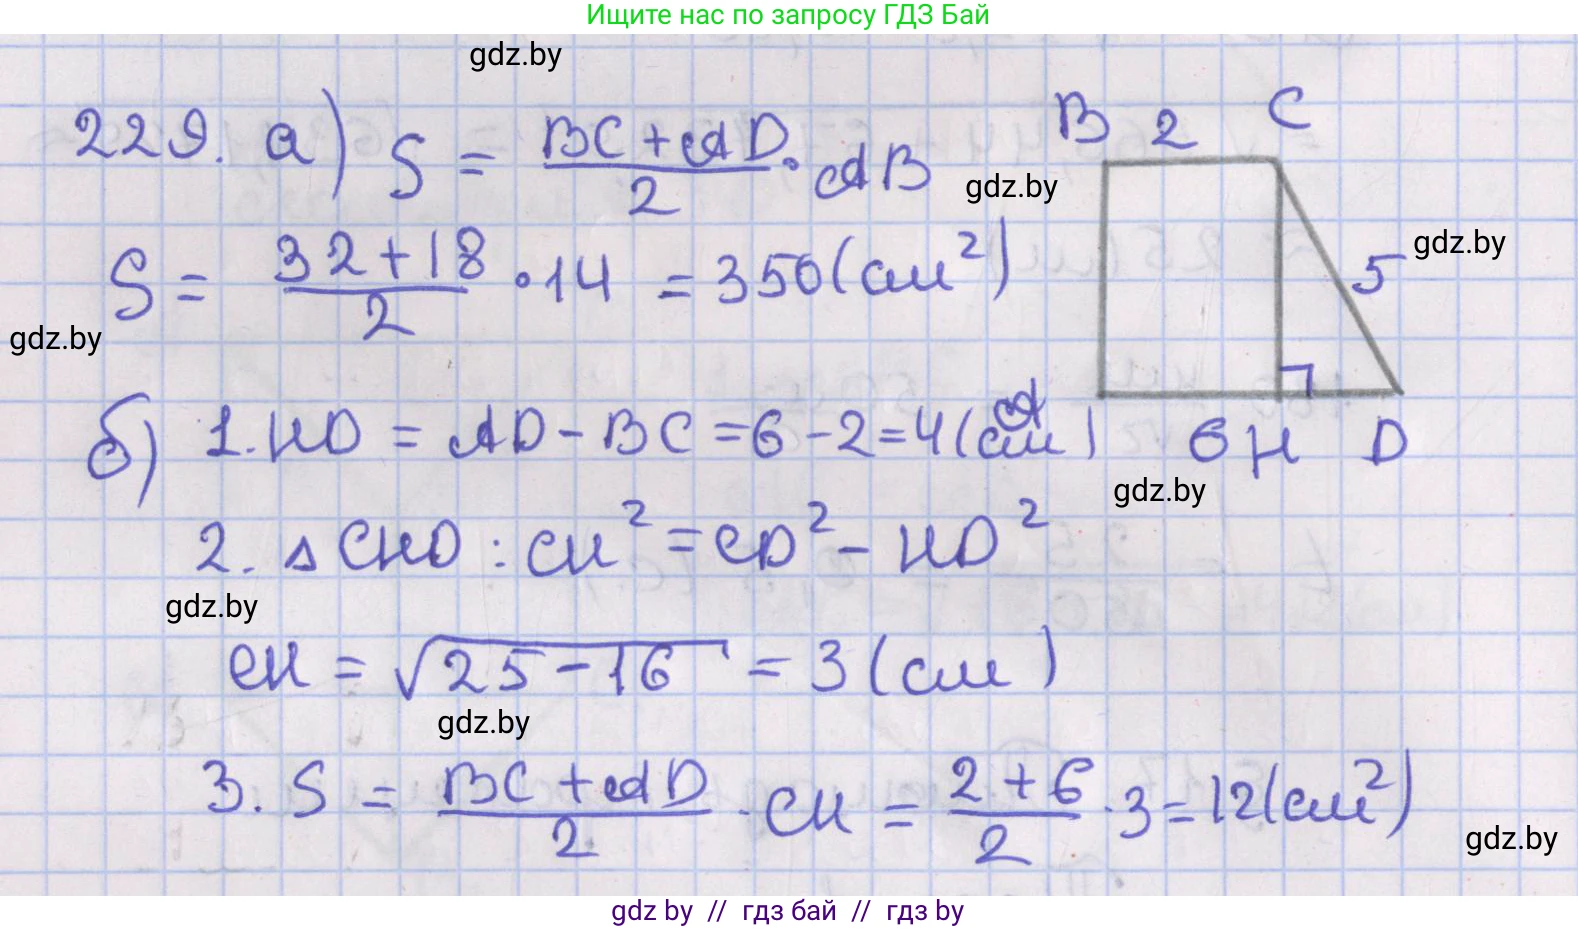 Ищите нас по запросу ГДЗ Бай
gdz.by
229. а) S = (BC + AD)/2 · AB
B 2 C
gdz.by
S = (32 + 18)/2 · 14 = 350 (см²)
gdz.by
5
gdz.by
б) 1. HD = AD - BC = 6 - 2 = 4 (см)
A 6 H D
gdz.by
2. △ CHD : CH² = CD² - HD²
gdz.by
CH = √25 - 16 = 3 (см)
gdz.by
3. S = (BC + AD)/2 · CH = (2 + 6)/2 · 3 = 12 (см²)
gdz.by
gdz by // гдз бай // гдз by